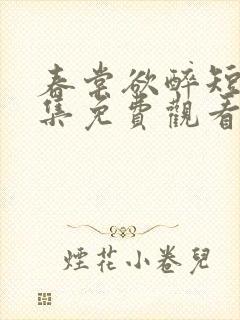 春棠欲醉短
集免費觀看
煙花小卷兒